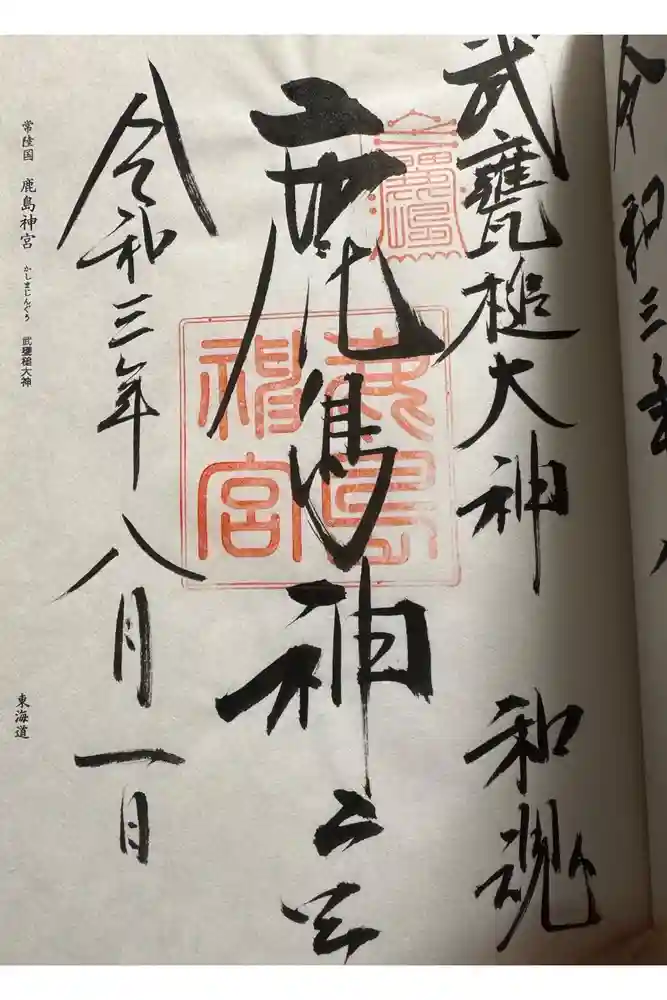 武甕槌大神 和魂
鹿島神宮
令和三年八月一日
鹿島神宮
常陸国 鹿島神宮 かしまじんぐう 武甕槌大神
東海道
令和三年八